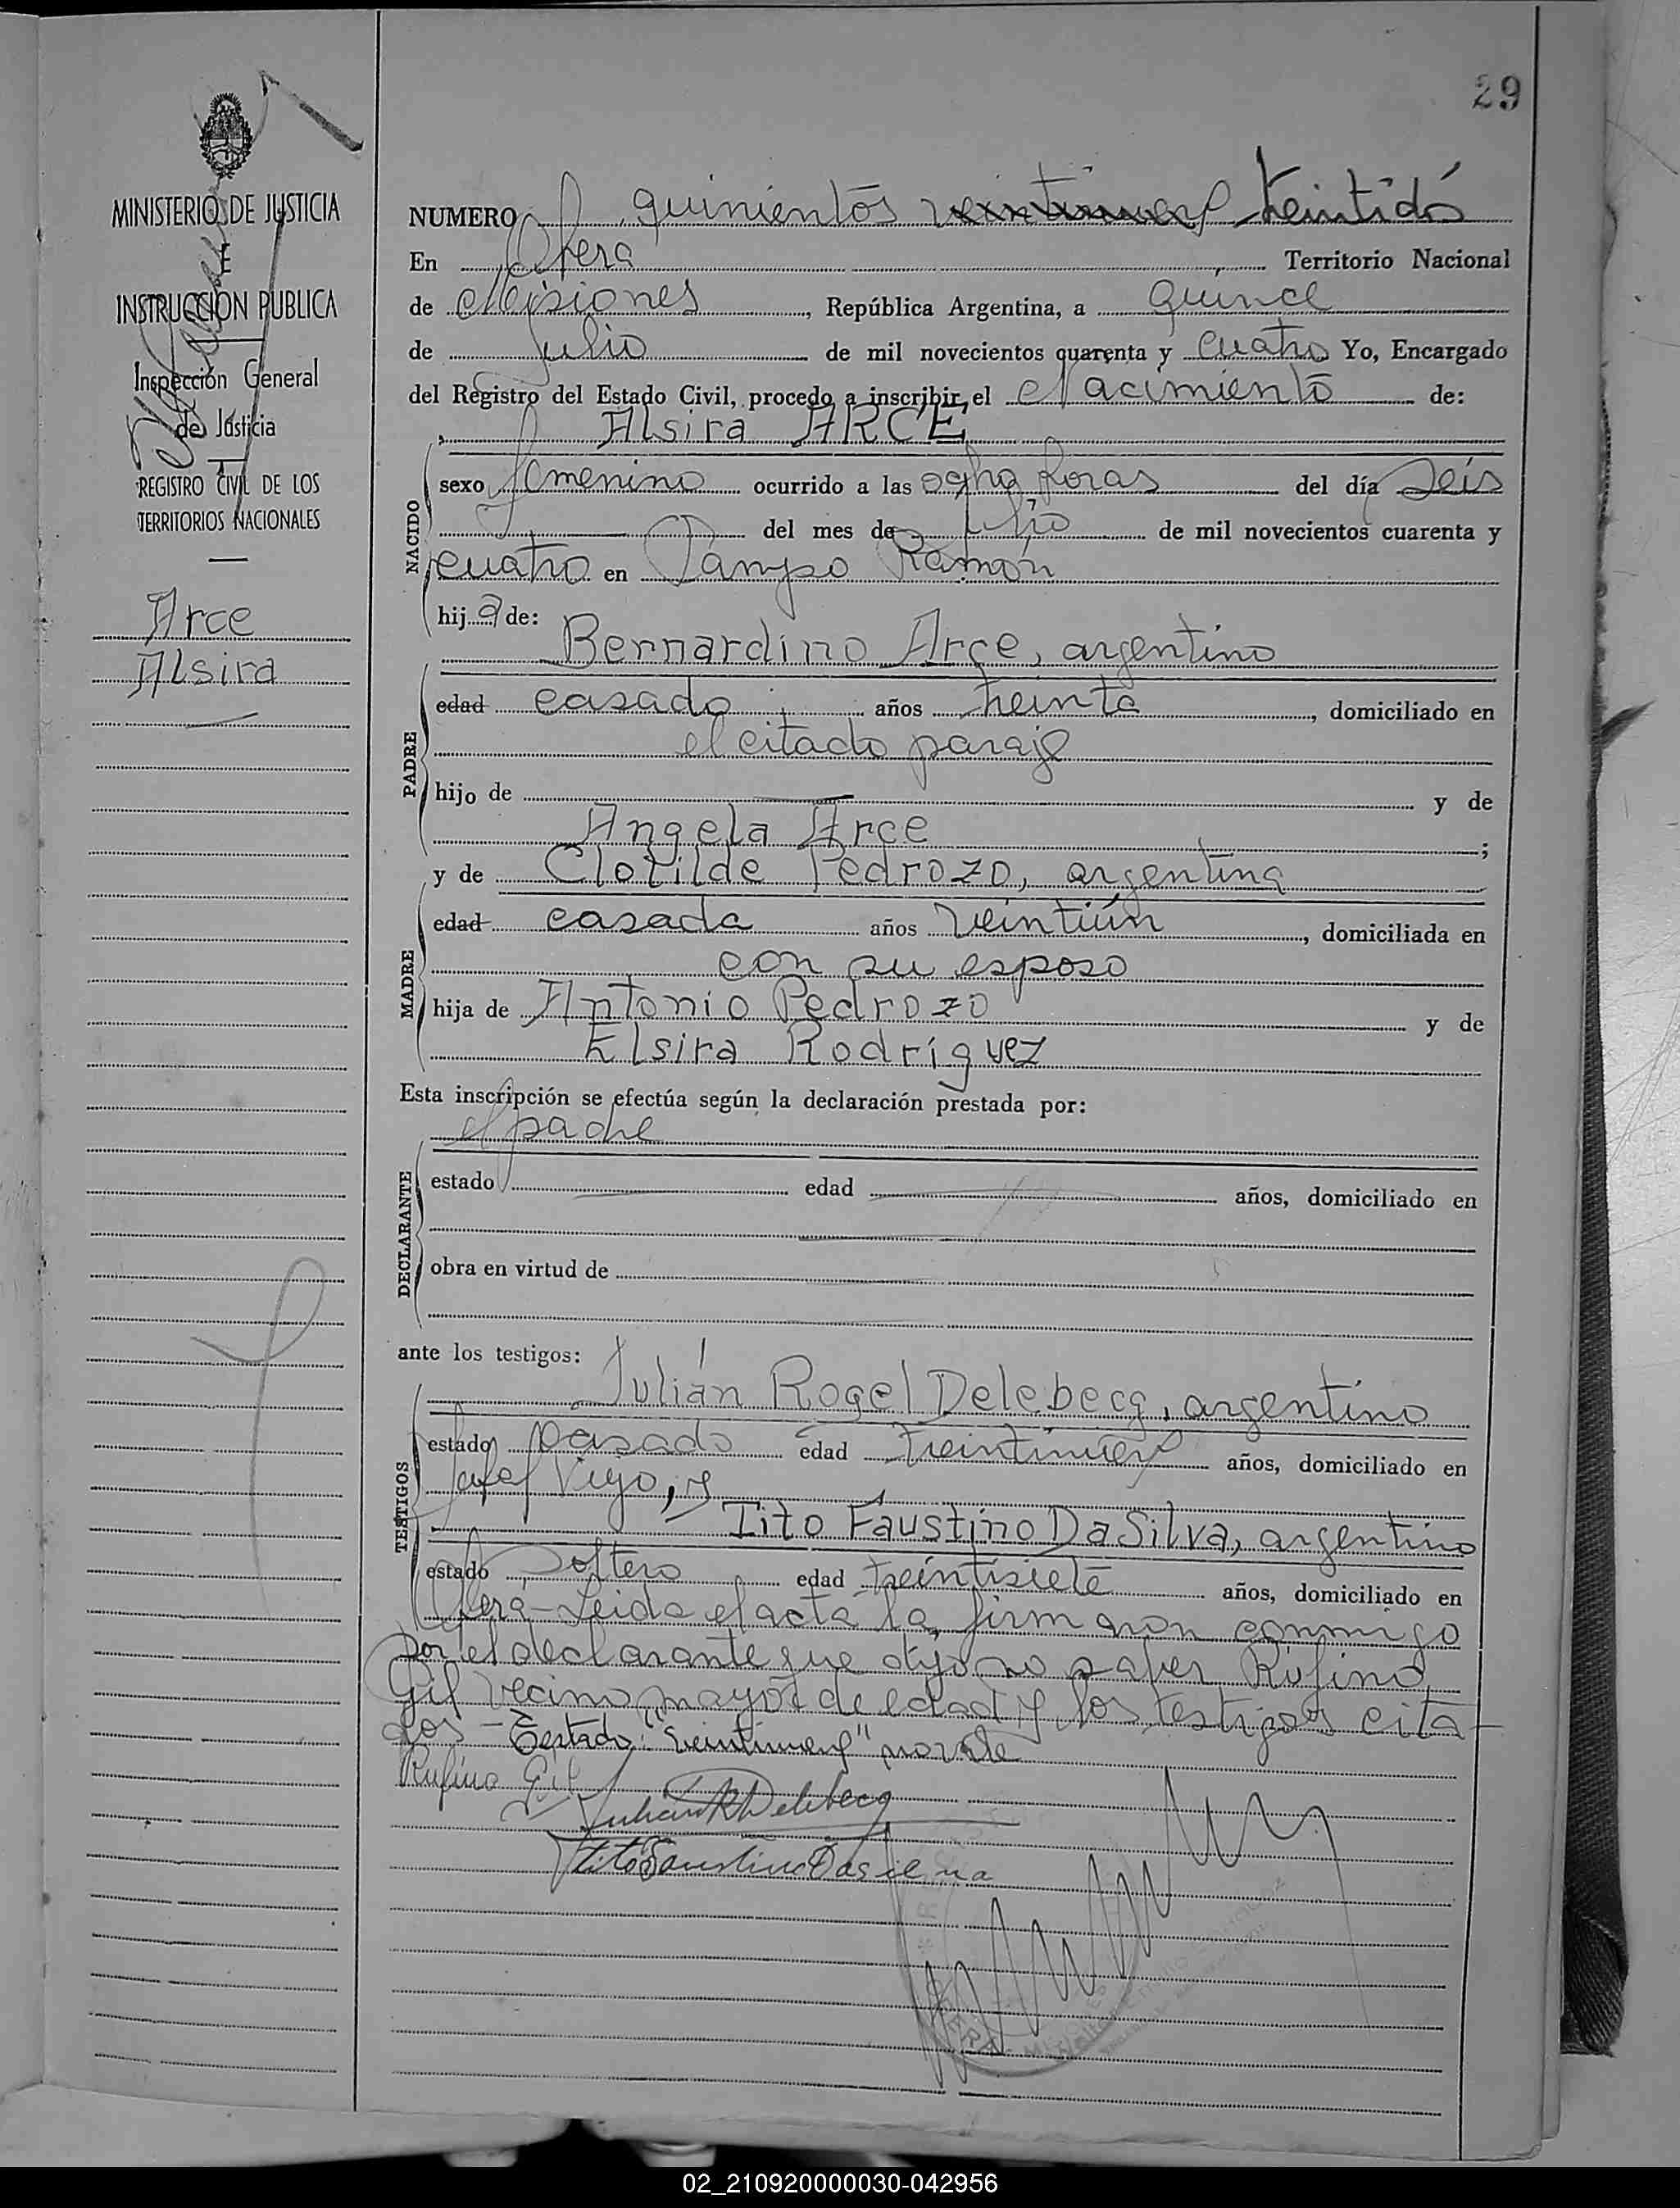 29
MINISTERIO DE JUSTICIA
E
INSTRUCCION PUBLICA
Inspección General
de Justicia
REGISTRO CIVIL DE LOS
TERRITORIOS NACIONALES
Arce
Alsira
NUMERO quinientos veintinueve treintidós
En Oberá Territorio Nacional
de Misiones, República Argentina, a quince
de Julio de mil novecientos cuarenta y cuatro Yo, Encargado
del Registro del Estado Civil, procedo a inscribir el Nacimiento de:
Alsira ARCE
NACIDO
sexo femenino ocurrido a las ocho horas del día seis
del mes de Julio de mil novecientos cuarenta y
cuatro en Campo Ramón
hija de:
Bernardino Arce, argentino
PADRE
edad casado años treinta, domiciliado en
el citado paraje
hijo de y de
Angela Arce;
y de Clotilde Pedrozo, argentina
MADRE
edad casada años veintiún, domiciliada en
con su esposo
hija de Antonio Pedrozo y de
Elsira Rodríguez
Esta inscripción se efectúa según la declaración prestada por:
el padre
DECLARANTE
estado edad años, domiciliado en
obra en virtud de
ante los testigos:
Julián Rogel Delebecq, argentino
TESTIGOS
estado casado edad treintinueve años, domiciliado en
Yerbal Viejo, y
Tito Faustino Da Silva, argentino
estado soltero edad treintisiete años, domiciliado en
Oberá - Leida el acta la firmaron conmigo
por el declarante que dijo no saber Rufino
Gil vecino mayor de edad y los testigos cita-
dos - Testado: "veintinueve" no vale
Rufino Gil
Julian R Delebecq
Tito Faustino Da silva
02_210920000030-042956